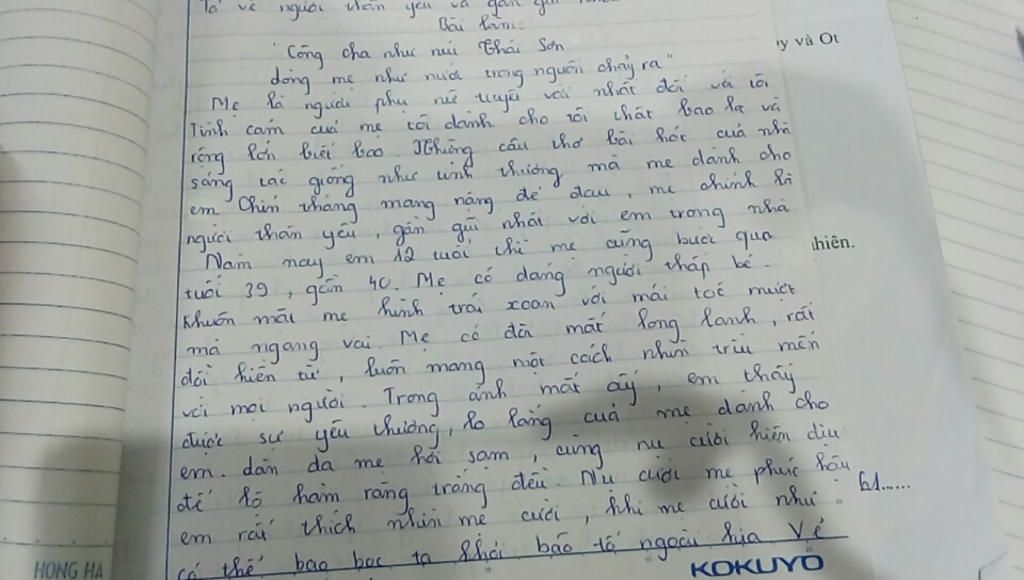 Tả về người thân yêu và gần gũi
Bài làm.
"Công cha như núi Thái Sơn
dòng mẹ như nước trong nguồn chảy ra"
Mẹ là người phụ nữ tuyệt vời nhất đối với tôi
Tình cảm của mẹ tôi dành cho tôi thật bao la và
rộng lớn biết bao. Những câu thơ bài hát của nhà
sáng tác giống như tình thương mà mẹ dành cho
em Chín tháng mang nặng đẻ đau, mẹ chính là
người thân yêu, gần gũi nhất với em trong nhà
Năm nay em 12 tuổi thì mẹ cũng bước qua
tuổi 39, gần 40. Mẹ có dáng người thấp bé.
Khuôn mặt mẹ hình trái xoan với mái tóc mượt
mà ngang vai. Mẹ có đôi mắt long lanh, rất
đôi hiền từ, luôn mang một cách nhìn trìu mến
với mọi người. Trong ánh mắt ấy, em thấy
được sự yêu thương, lo lắng của mẹ dành cho
em. dàn da mẹ hơi sạm, cùng nụ cười hiền dịu
để lộ hàm răng trắng đều. Nụ cười mẹ phúc hậu
em rất thích nhìn mẹ cười, khi mẹ cười như
có thể bao bọc ta khỏi bão tố ngoài kia Về
ay và Ot
hiên.
61......
HONG HA
KOKUYO